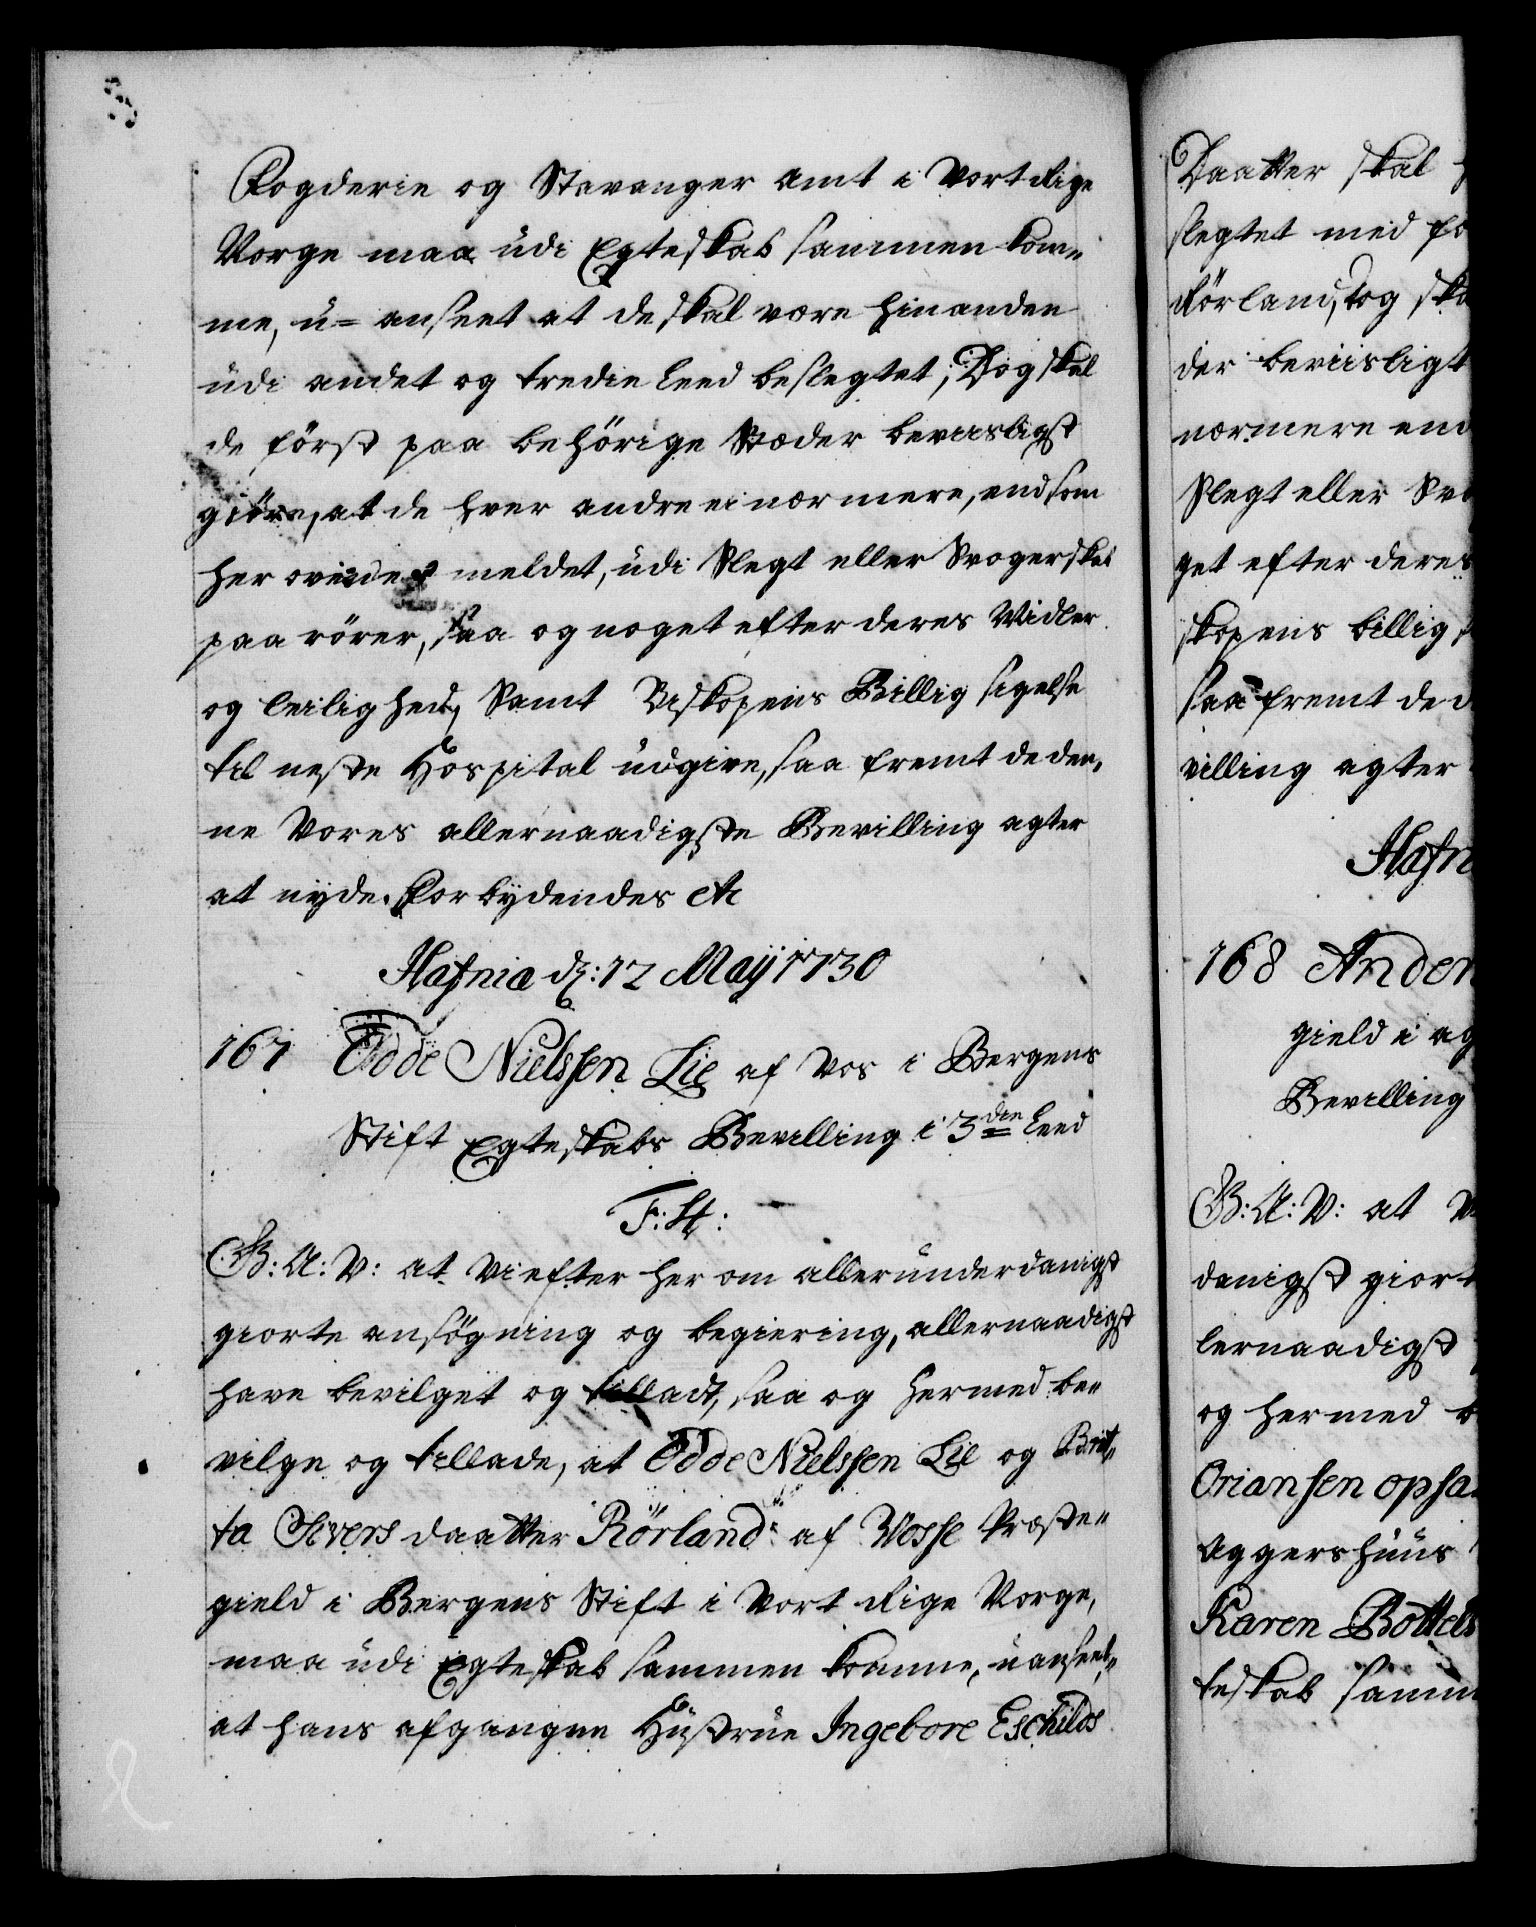 Fogderie og Stavanger Amt i Vort Rige
Norge maa udi Egteskab sammen kom-
me, u= anseet at de skal være hinanden
udi andet og tredie Leed beslegtet; Dog skal
de först paa behörige Stæder bevisligst
giöre, at de hver andre ei nærmere, end som
her oven meldet, udi Slegt eller Svogerskab
paa rörer, saa og noget efter deres Midler
og Leilighed, Samt Biskopens Billig sigelse
til neste Hospital udgive, saa fremt de den-
ne Vores allernaadigste Bevilling agter
at nyde. Forbydendes etc
Hafniæ d: 12 Maij 1730
167 Odde Nielssen Lie af Vos i Bergens
Stift Egteskabs Bevilling i 3die Leed
F: 4:
G: A: V: at Vi efter her om allerunderdanigst
giorte ansögning og begiering, allernaadigst
have bevilget og tilladt, saa og hermed be-
vilge og tillade, at Odde Nielssen Lie og Brit-
ta Sivers daatter Rörland af Vosse Præste-
gield i Bergens Stift i Vort Rige Norge,
maa udi Egteskab sammen komme, uanseet,
at hans afgangne Hustrue Ingebore Eschilds
Daatter skal
slegtet med
Rörland, dog
der beviisligt
nærmere end
Slegt eller
get efter deres
skopens billig
saa fremt de
villing agter
168
gield i
Bevilling
G: A: V: at
danigst giort
lernaadigst
og hermed
Oriansen
Aggershuus
Karen
teskab